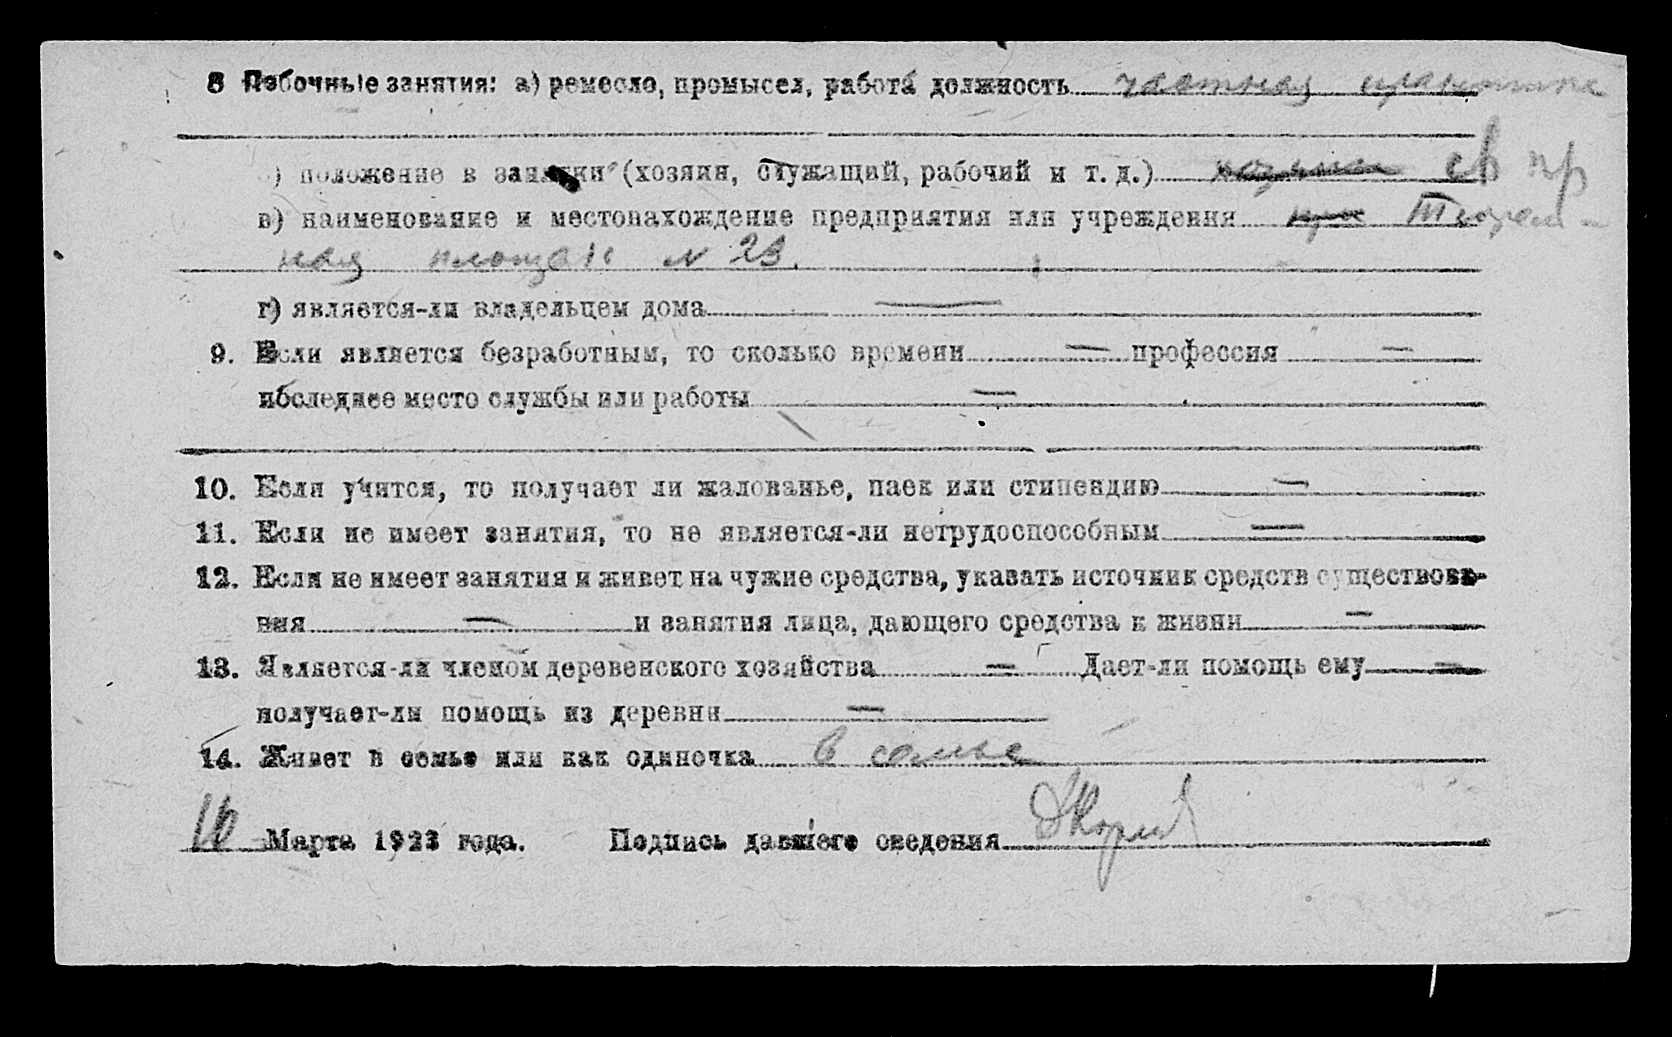 8 Побочные занятия: а) ремесло, промысел, работа должность частная практика
б) положение в занятии (хозяин, служащий, рабочий и т. д.) хозяин св пр
в) наименование и местонахождение предприятия или учреждения
ная площадь № 23.
г) является-ли владельцем дома —
9. Если является безработным, то сколько времени — профессия —
последнее место службы или работы —
10. Если учится, то получает ли жалованье, паек или стипендию —
11. Если не имеет занятия, то не является-ли нетрудоспособным —
12. Если не имеет занятия и живет на чужие средства, указать источник средств существова-
ния — и занятия лица, дающего средства к жизни —
13. Является-ли членом деревенского хозяйства — Дает-ли помощь ему —
получает-ли помощь из деревни —
14. Живет в семье или как одиночка в семье
16 Марта 1923 года. Подпись давшего сведения